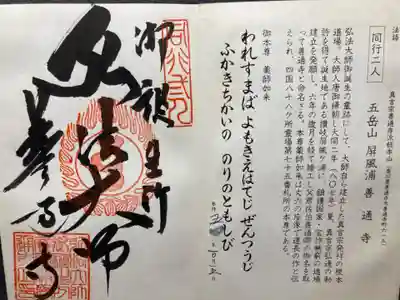 法語
同行二人
真言宗善通寺派総本山
五岳山 屏風浦 善通寺
弘法大師御誕生の霊跡にして、大師自ら建立した真言宗発祥の根本
道場。大師入唐御帰朝、大同二年(八〇七)夏、真言宗弘通の勅
許を得て誕生地である讃岐屏風ヶ浦に、鎮護国家・宝祚無窮の道場
建立を発願し、六年の歳月を経て竣工。父君佐伯善通卿の御名を取
って善通寺と命名さる。本尊薬師如来は丈六の座像で運長の作と伝
えられ、四国八十八ケ所霊場第七十五番札所の本尊である。
御本尊 薬師如来
われすまば よもきえはてじ ぜんつうじ
ふかきちかいの のりのともしび
御誕生所
弘法大師
善通寺